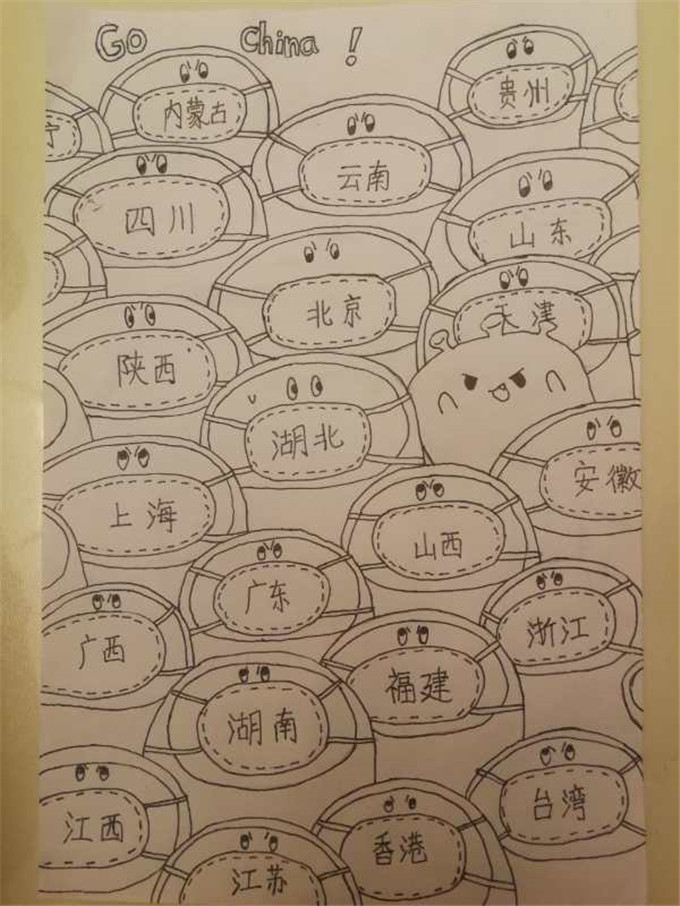 Go China!
内蒙古
贵州
宁
云南
四川
山东
北京
天津
陕西
湖北
上海
安徽
山西
广东
广西
浙江
福建
湖南
江西
台湾
香港
江苏